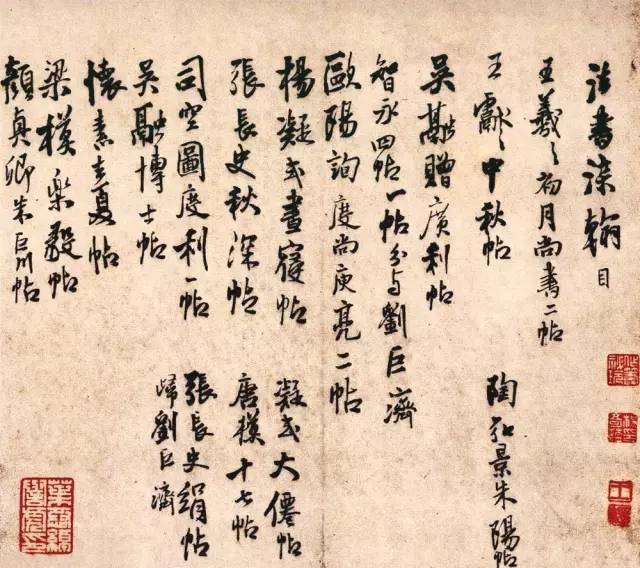 法書染翰目
王羲之初月尚書二帖
王獻之中秋帖
陶弘景朱陽帖
吳融贈廣利帖
智永四帖一帖分与劉巨濟
歐陽詢度尚庾亮二帖
楊凝式晝寢帖
凝式大僊帖
張長史秋深帖
唐模十七帖
司空圖度利一帖
張長史絹帖
歸劉巨濟
吳融博士帖
懷素去夏帖
梁模樂毅帖
顏真卿朱巨川帖